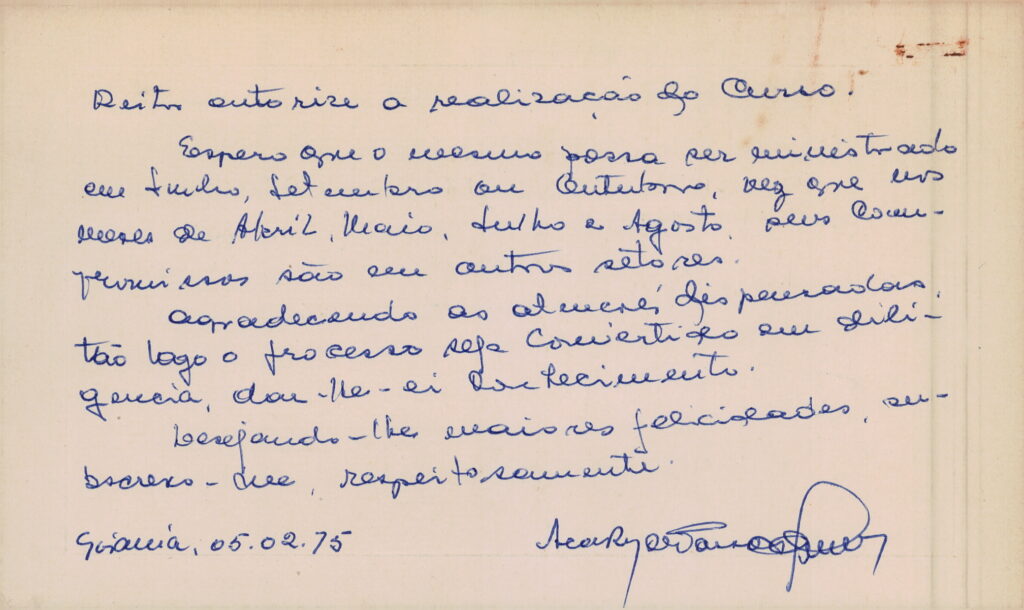 Reitor autorize a realização do Curso.
Espero que o mesmo possa ser ministrado
em Junho, Setembro ou Outubro, vez que nos
meses de Abril, Maio, Julho e Agosto, seus Com-
promissos são em outros setores.
Agradecendo as atenções dispensadas,
tão logo o processo seja Convertido em dili-
gencia, dar-lhe-ei Conhecimento.
Desejando-lhe maiores felicidades, su-
bscrevo-me, respeitosamente.
Goiania, 05.02.75
Acary de